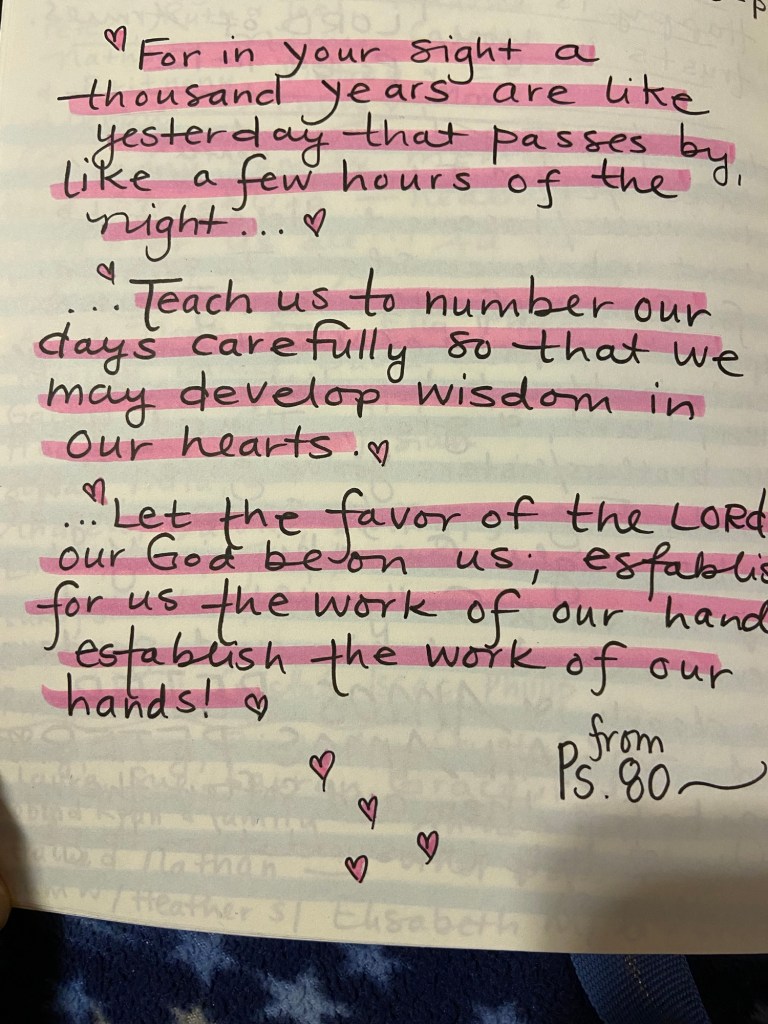 For in your sight a
thousand years are like
yesterday that passes by,
like a few hours of the
night...
...Teach us to number our
days carefully so that we
may develop wisdom in
our hearts.
...Let the favor of the LORD
our God be on us; establis
for us the work of our hand
establish the work of our
hands!
from
Ps. 80
Nathan
w/Heather S/ Elisabeth